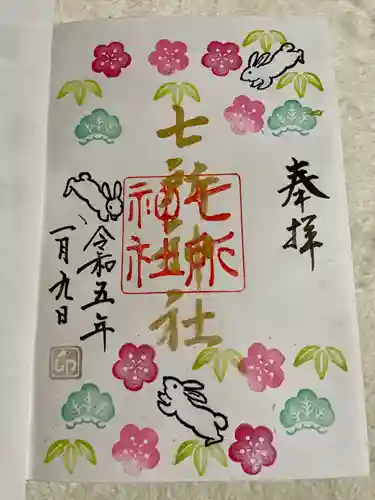 奉拝
七所神社
七所神社
令和五年
一月九日
卯